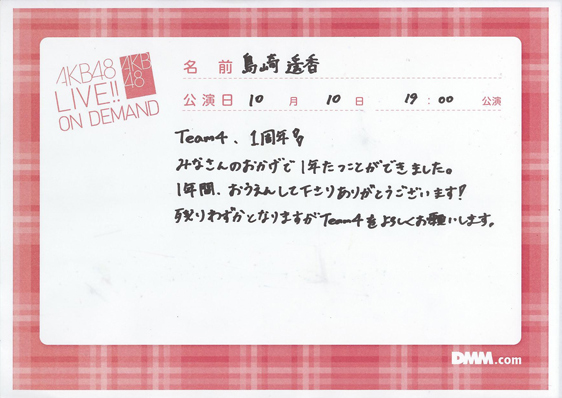 AKB48
LIVE!!
ON DEMAND
AKB
48
名 前 島崎 遥香
公演日 10 月 10 日 19 : 00 公演
Team4、1周年!!
みなさんのおかげで1年たつことができました。
1年間、おうえんして下さりありがとうございます!
残りわずかとなりますがTeam4をよろしくお願いします。
DMM.com